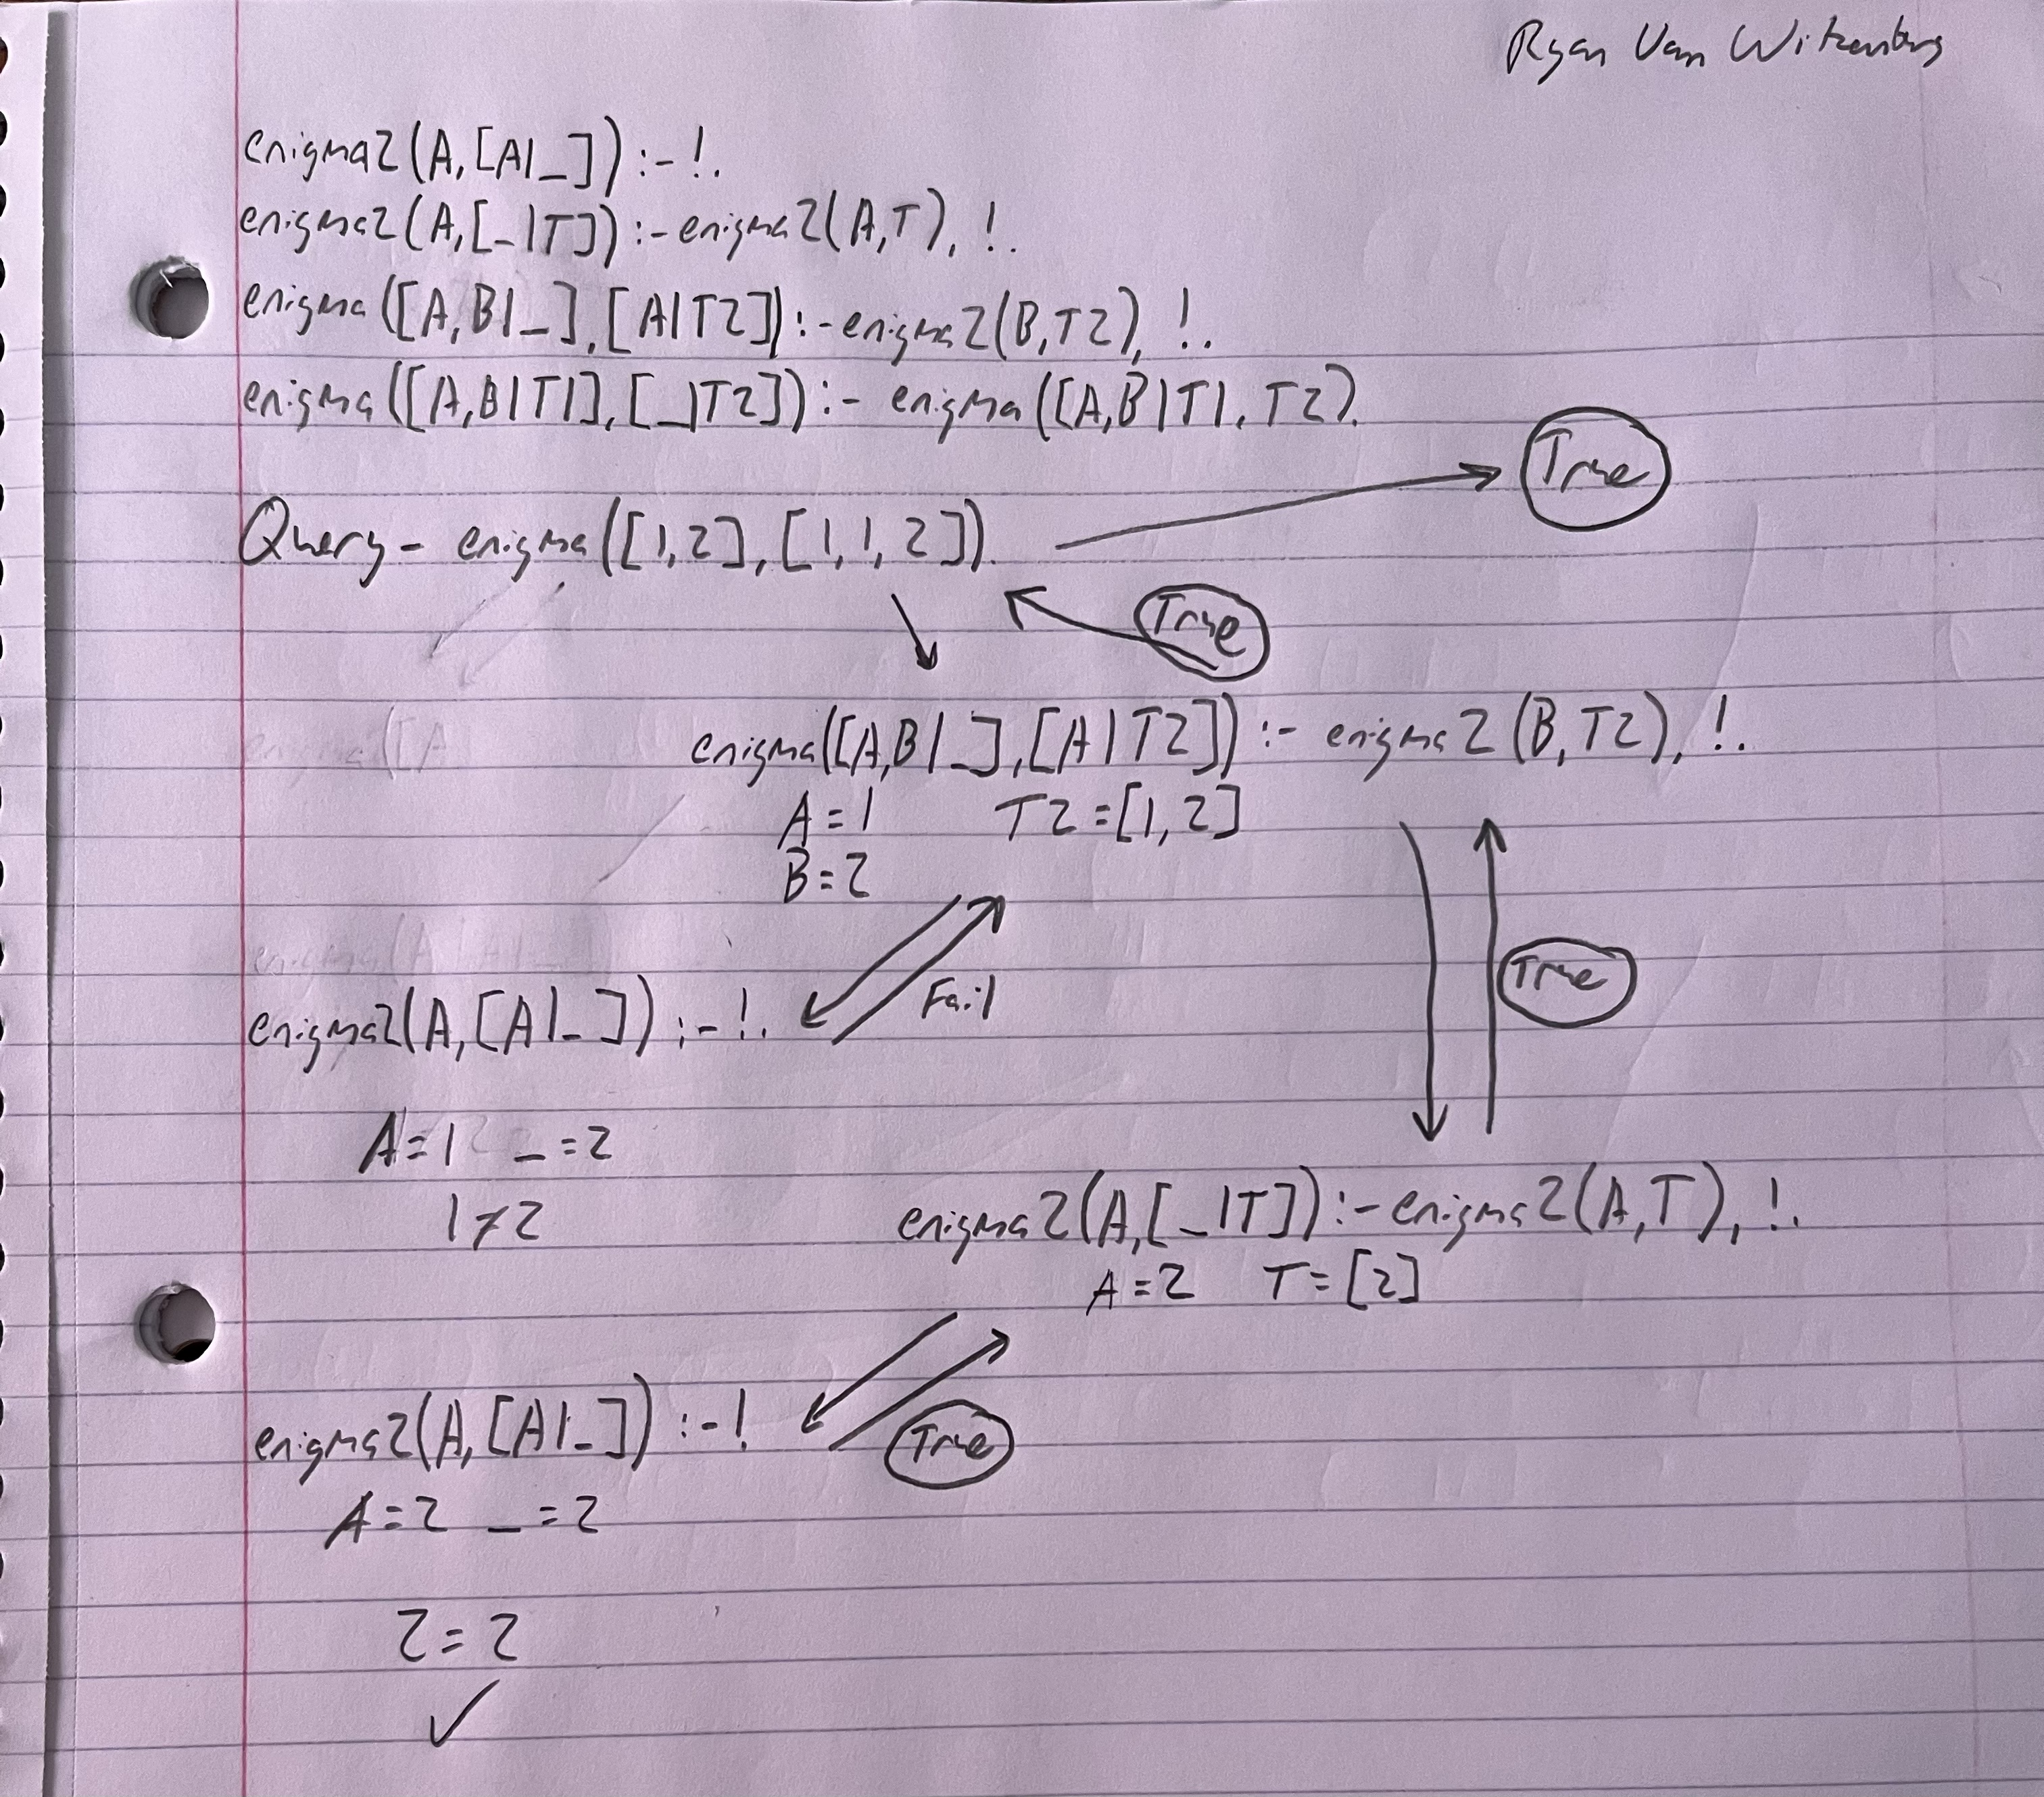 Ryan Van Witzenburg
enigma2(A,[A|_]):-!.
enigma2(A,[_|T]):-enigma2(A,T), !.
enigma([A,B|_],[A|T2]):-enigma2(B,T2), !.
enigma([A,B|T1],[_|T2]):- enigma([A,B|T1, T2).
True
Query - enigma([1,2],[1,1,2]).
True
enigma([A,B|_],[A|T2]):- enigma2(B,T2), !.
A=1 T2=[1,2]
B=2
True
Fail
enigma2(A,[A|_]):-!.
A=1 _=2
1≠2
enigma2(A,[_|T]):-enigma2(A,T), !.
A=2 T=[2]
enigma2(A,[A|_]):-!
True
A=2 _=2
2=2
✓